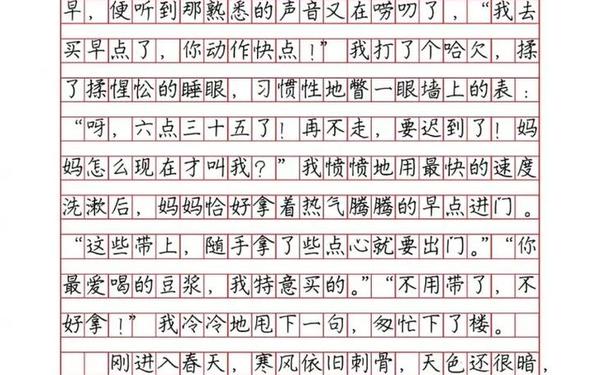 早，便听到那熟悉的声音又在唠叨了，“我去
买早点了，你动作快点！”我打了个哈欠，揉
了揉惺忪的睡眼，习惯性地瞥一眼墙上的表：
“呀，六点三十五了！再不走，要迟到了！妈
妈怎么现在才叫我？”我愤愤地用最快的速度
洗漱后，妈妈恰好拿着热气腾腾的早点进门。
“这些带上，随手拿了些点心就要出门。”“你
最爱喝的豆浆，我特意买的。”“不用带了，不
好拿！”我冷冷地甩下一句，匆忙下了楼。
刚进入春天，寒风依旧刺骨，天色还很暗，